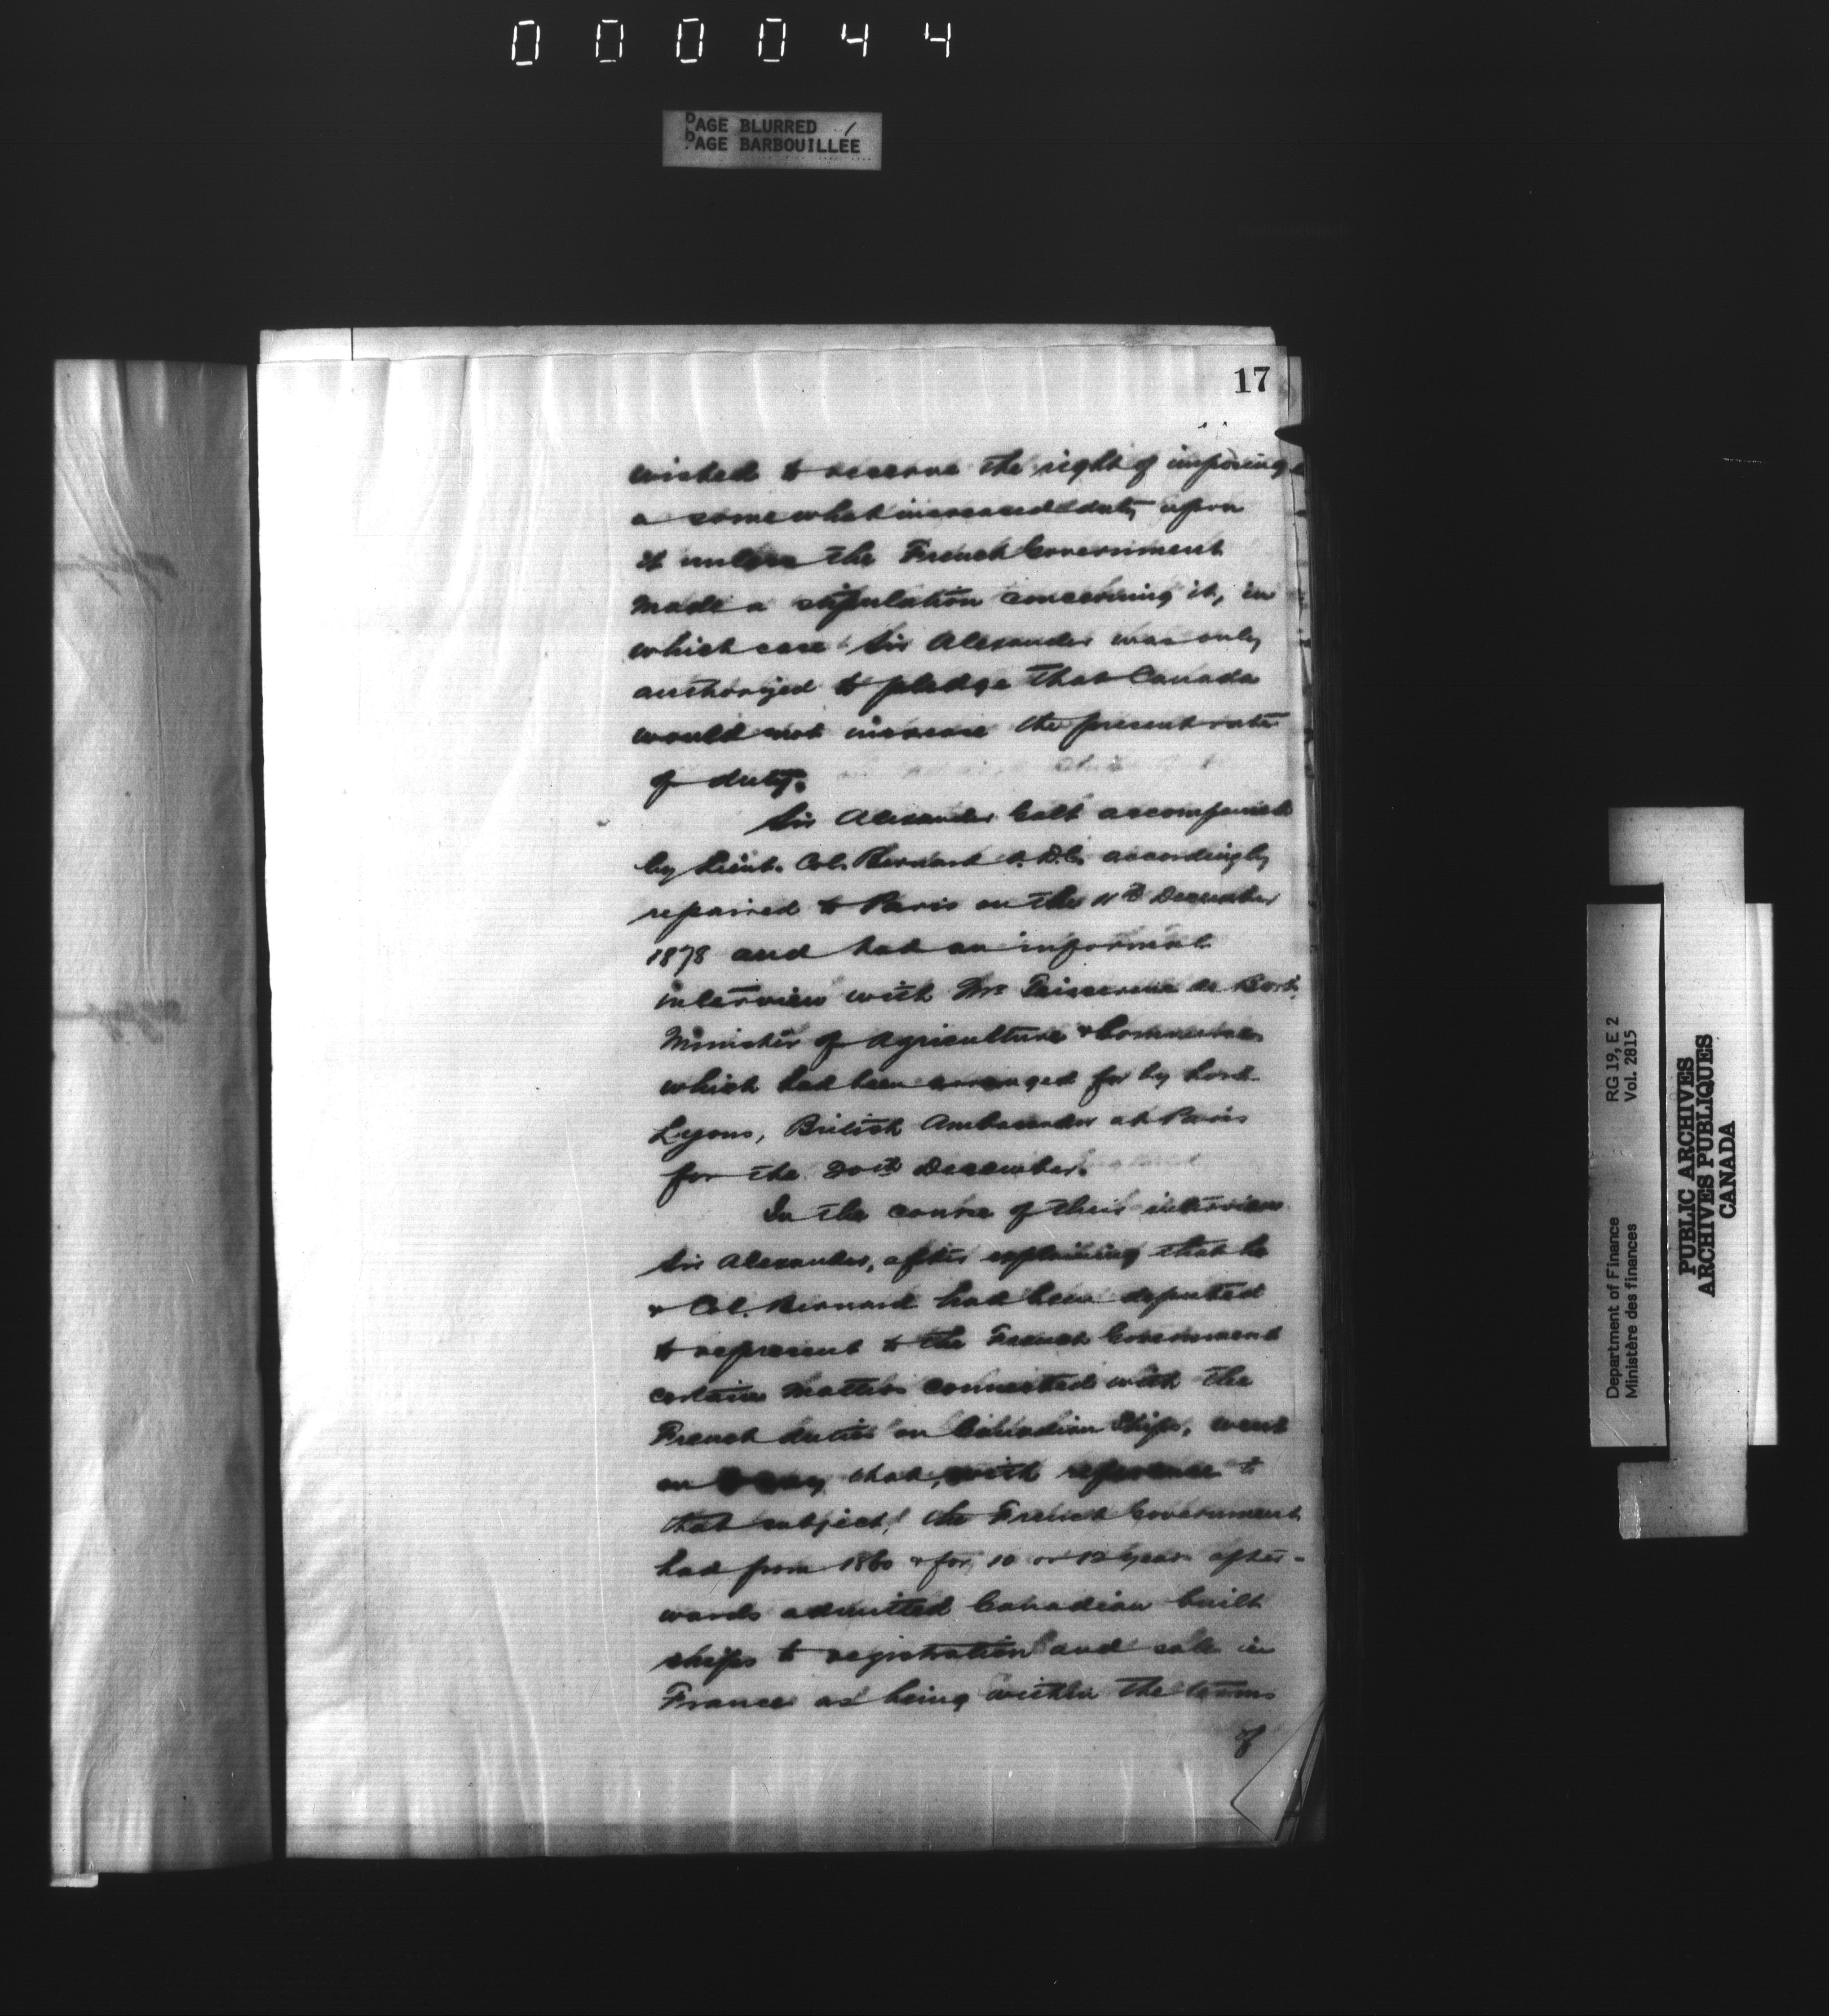 000044
PAGE BLURRED
PAGE BARBOUILLÉE
17
wished to reserve the right of imposing
a somewhat increased duty upon
it unless the French Government
made a stipulation concerning it, in
which case Sir Alexander was only
authorized to pledge that Canada
would not increase the present rate
of duty.
Sir Alexander Galt accompanied
by Lieut. Col. Bernard A.D.C. accordingly
repaired to Paris on the December
1878 and had an informal
interview with Mr. Teisserenc de Bort,
Minister of Agriculture & Commerce
which had been arranged for by Lord
Lyons, British Ambassador at Paris
for the 20th December.
In the course of their interview
Sir Alexander, after explaining that he
& Col. Bernard had been deputed
to represent to the French Government
certain matters connected with the
French duties on Canadian Ships, went
on to say that, with reference to
that subject, the French Government
had from 1860 & for 10 or 12 years after-
wards admitted Canadian built
ships to registration and sale in
France as being within the terms
of
Department of Finance RG 19, E 2
Ministère des finances Vol. 2815
PUBLIC ARCHIVES
ARCHIVES PUBLIQUES
CANADA